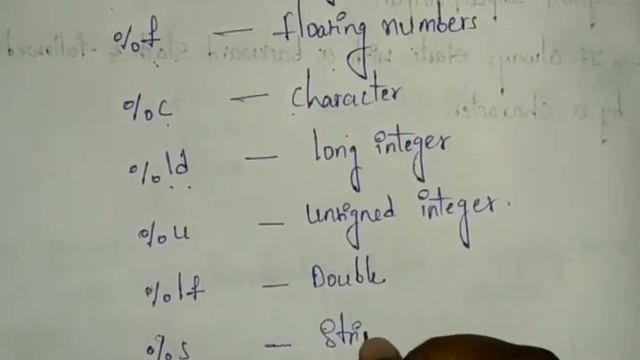 %f — floating numbers
%c — character
%ld — long integer
%u — unsigned integer.
%lf — Double
%s — Stri